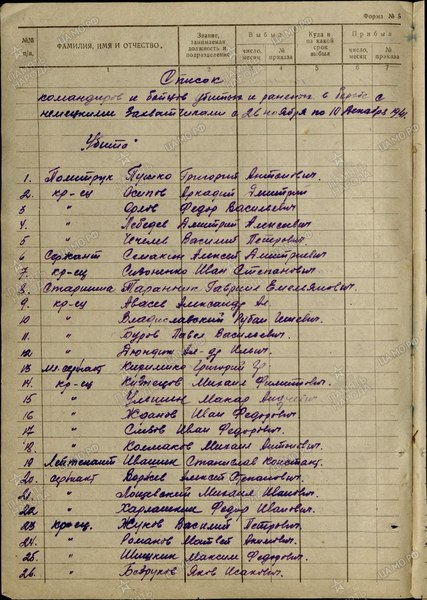 Форма № 5
№№ п/п. ФАМИЛИЯ, ИМЯ И ОТЧЕСТВО, Звание, занимаемая должность и подразделение Выбыл Куда и на какой срок выбыл Прибыл
число, месяц № приказа число, месяц № приказа
1 2 3 4 5 6 7
Список
командиров и бойцов убитых и ранен в борьбе с
немецкими захватчиками с 26 ноября по 10 декабря 1941
Убито
1. Политрук Пушко Григорий Антонович.
2. кр-ец Осипов Аркадий Дмитрий
3 " Орлов Федор Васильевич
4. " Лебедев Дмитрий Алексеевич
5 " Чекелев Василий Петрович
6 Сержант Семакин Алексей Дмитриевич
7. кр-ец Сивоненко Иван Степанович
8. Старшина Таранник Гавриил Емельянович.
9. кр-ец Авасев Александр Ал.
10. " Владиславский Рубан
11. " Буров Павел Васильевич.
12. " Ал-др Ильич.
13 мл. сержант Кириленко Григорий Гр
14. кр-ец Кузнецов Михаил Филиппович.
15 " Макар Андреевич
16 " Жданов Иван Федорович.
17 " Сивов Иван Федорович.
18. " Колмаков Михаил Антонович.
19. Лейтенант Ивашин Станислав Констант.
20. сержант Алексей Степанович.
21. " Михаил Иванович.
22. " Харлашкин Федор Иванович.
23 кр-ец. Жуков Василий Петрович.
24. " Романов Матвей
25. " Шишкин Максим Федорович.
26. " Бобруков Яков Исакович.